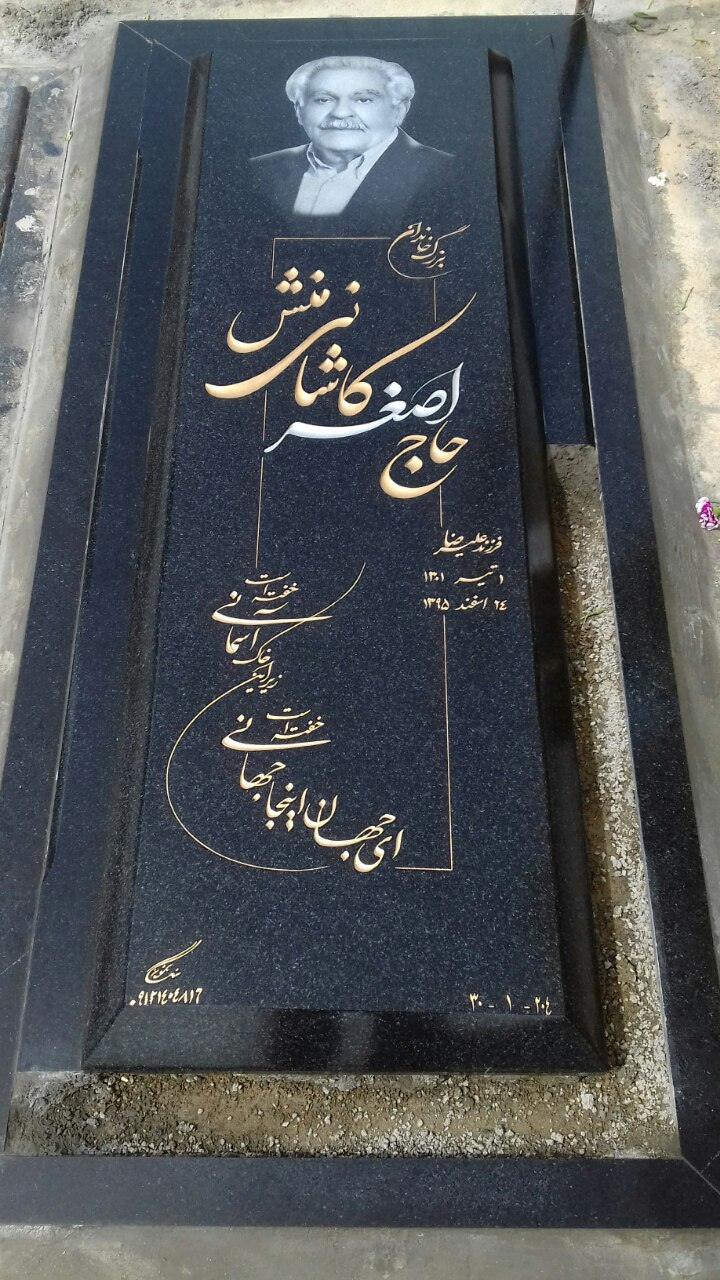 بزرگ خاندان
حاج اصغر کاشانی منش
فرزند علیرضا
۱ تیر ۱۳۰۱
۲۴ اسفند ۱۳۹۵
ای جهان اینجا جهانی خفته است
زیر این خاک آسمانی خفته است
۲۰۴ - ۱ - ۳۰
۰۹۱۲۱۴۰۴۸۱۶